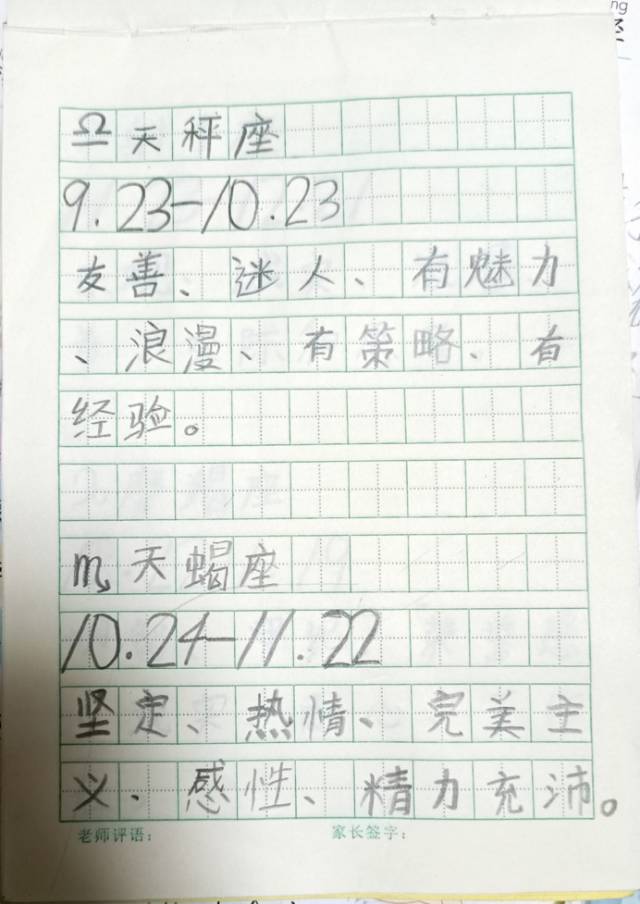 ♎天秤座
9.23-10.23
友善、迷人、有魅力
、浪漫、有策略、有
经验。
♏天蝎座
10.24-11.22
坚定、热情、完美主
义、感性、精力充沛。
老师评语： 家长签字：